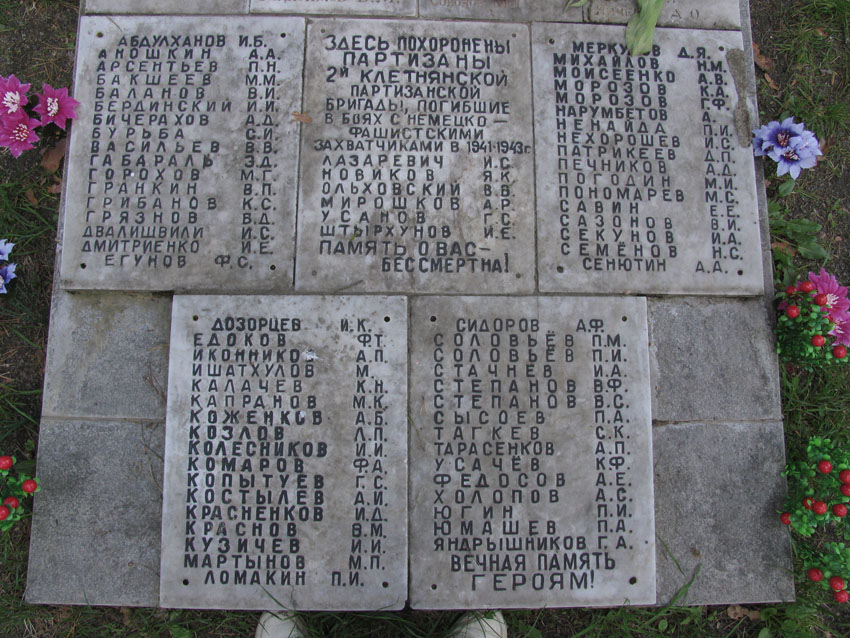 АБДУЛХАНОВ И.Б.
АНОШКИН А.А.
АРСЕНТЬЕВ П.Н.
БАКШЕЕВ М.М.
БАЛАНОВ В.И.
БЕРДИНСКИЙ И.И.
БИЧЕРАХОВ А.Д.
БУРЬБА С.И.
ВАСИЛЬЕВ В.В.
ГАБАРАЛЬ З.Д.
ГОРОХОВ М.Г.
ГРАНКИН В.П.
ГРИБАНОВ К.С.
ГРЯЗНОВ В.Д.
ДВАЛИШВИЛИ И.С.
ДМИТРИЕНКО И.Е.
ЕГУНОВ Ф.С.
ЗДЕСЬ ПОХОРОНЕНЫ
ПАРТИЗАНЫ
2Й КЛЕТНЯНСКОЙ
ПАРТИЗАНСКОЙ
БРИГАДЫ, ПОГИБШИЕ
В БОЯХ С НЕМЕЦКО-
ФАШИСТСКИМИ
ЗАХВАТЧИКАМИ В 1941-1943г.
ЛАЗАРЕВИЧ И.С.
НОВИКОВ Я.К.
ОЛЬХОВСКИЙ В.В.
МИРОШКОВ А.Р.
УСАНОВ Г.С.
ШТЫРХУНОВ И.Е.
ПАМЯТЬ О ВАС-
БЕССМЕРТНА!
МЕРКУЛОВ Д.Я.
МИХАЙЛОВ Н.М.
МОИСЕЕНКО А.В.
МОРОЗОВ К.А.
МОРОЗОВ Г.Ф.
НАРУМБЕТОВ А.
НЕНАЙДА П.И.
НЕХОРОШЕВ И.С.
ПАТРИКЕЕВ Д.П.
ПЕЧНИКОВ А.Д.
ПОГОДИН М.И.
ПОНОМАРЕВ М.С.
САВИН Е.Е.
САЗОНОВ В.И.
СЕКУНОВ И.А.
СЕМЁНОВ Н.С.
СЕНЮТИН А.А.
ДОЗОРЦЕВ И.К.
ЕДОКОВ Ф.Т.
ИКОННИКОВ А.П.
ИШАТХУЛОВ М.
КАЛАЧЕВ К.Н.
КАПРАНОВ М.К.
КОЖЕНКОВ А.Б.
КОЗЛОВ Л.П.
КОЛЕСНИКОВ И.И.
КОМАРОВ Ф.А.
КОПЫТУЕВ Г.С.
КОСТЫЛЕВ А.Й.
КРАСНЕНКОВ И.Д.
КРАСНОВ В.М.
КУЗИЧЕВ И.И.
МАРТЫНОВ М.П.
ЛОМАКИН П.И.
СИДОРОВ А.Ф.
СОЛОВЬЁВ П.М.
СОЛОВЬЕВ П.И.
СТАЧНЕВ И.А.
СТЕПАНОВ В.Ф.
СТЕПАНОВ В.С.
СЫСОЕВ П.А.
ТАГКЕВ С.К.
ТАРАСЕНКОВ А.П.
УСАЧЁВ К.Ф.
ФЕДОСОВ А.Е.
ХОЛОПОВ А.С.
ЮГИН П.И.
ЮМАШЕВ П.А.
ЯНДРЫШНИКОВ Г.А.
ВЕЧНАЯ ПАМЯТЬ
ГЕРОЯМ!